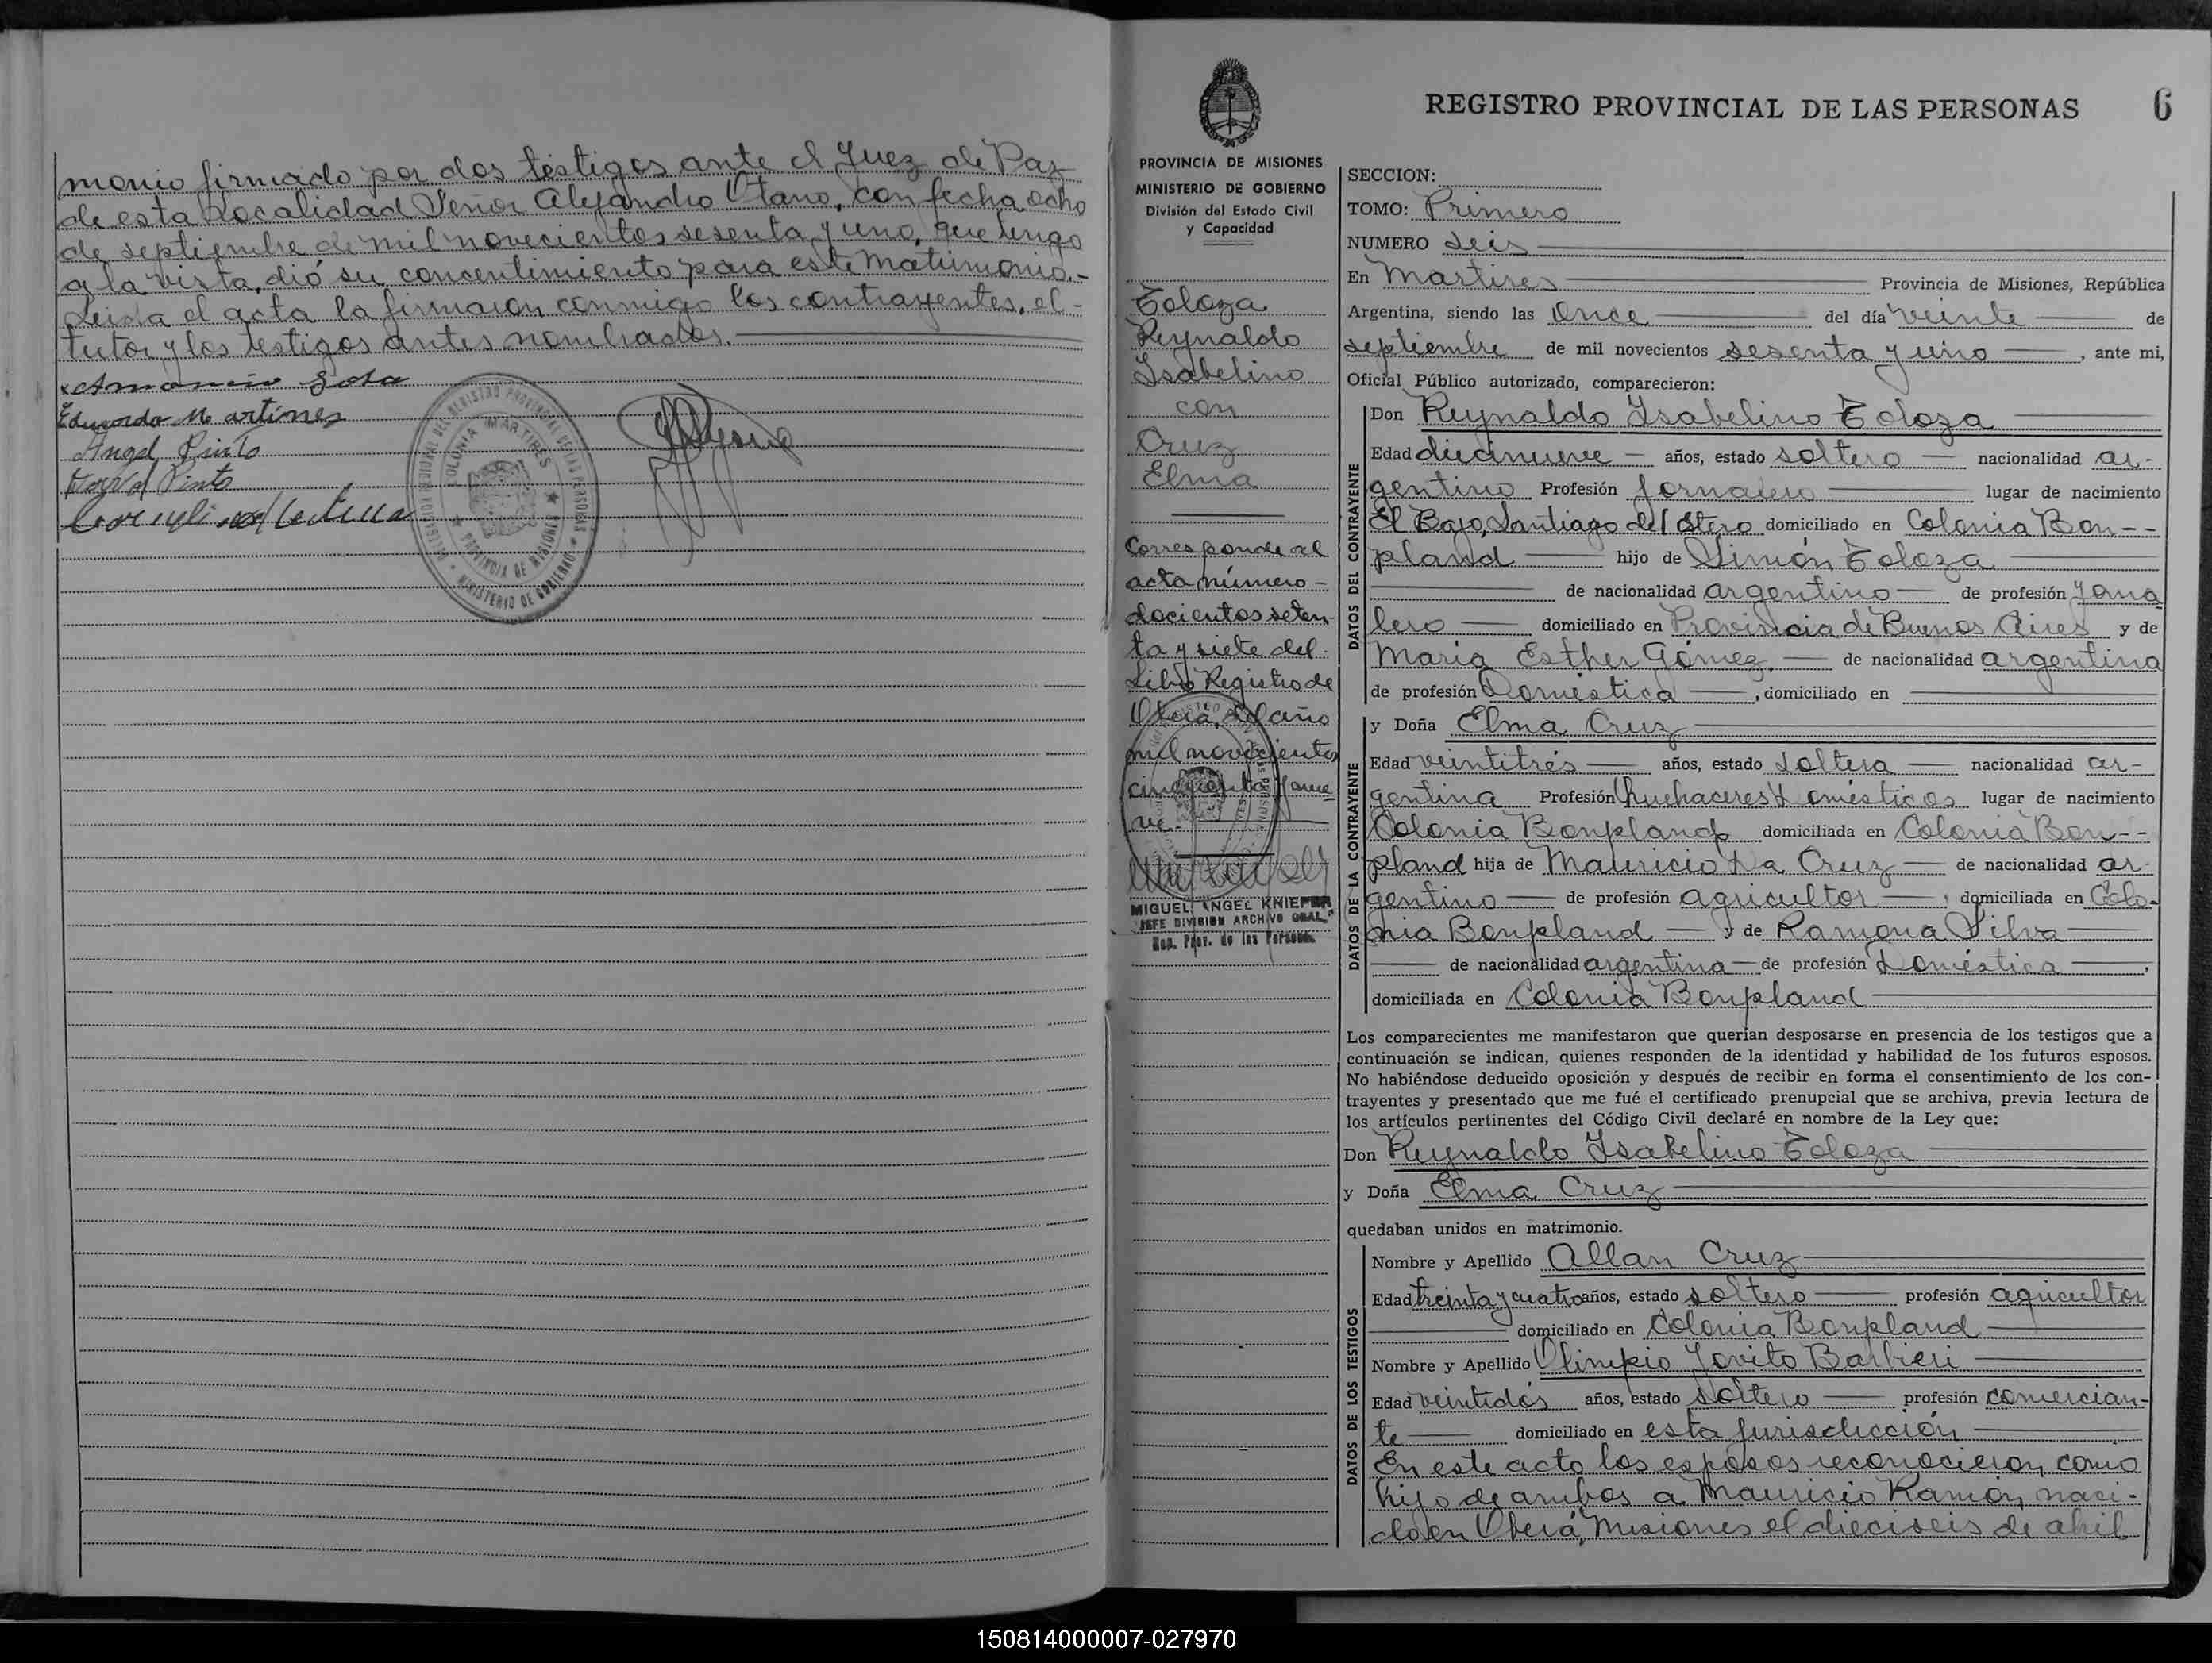 monio firmado por dos testigos ante el Juez de Paz
de esta Localidad Señor Alejandro Otano, con fecha ocho
de septiembre de mil novecientos sesenta y uno, que tengo
a la vista, dió su concentimiento para este Matrimonio.-
Leida el acta la firmaron conmigo los contrayentes, el -
tutor y los testigos antes nombrados.
Amancio Sosa
Eduardo Martines
Angel Pinto
Pinto
COLONIA MARTIRES
PROVINCIA DE MISIONES
MINISTERIO DE GOBIERNO
REGISTRO PROVINCIAL DE LAS PERSONAS 6
PROVINCIA DE MISIONES
MINISTERIO DE GOBIERNO
División del Estado Civil
y Capacidad
Toloza
Reynaldo
Isabelino
con
Cruz
Elma
Corresponde al
acta número -
docientos seten-
ta y siete del
Libro Registro de
Oberá, del año
mil novecientos
cincuenta y nue
ve.-
MIGUEL ANGEL KNIEPER
JEFE DIVISION ARCHIVO GRAL.
Reg. Prov. de las Personas
SECCION:
TOMO: Primero
NUMERO Seis
En Martires Provincia de Misiones, República
Argentina, siendo las Once del día veinte de
septiembre de mil novecientos sesenta y uno, ante mi,
Oficial Público autorizado, comparecieron:
DATOS DEL CONTRAYENTE
Don Reynaldo Isabelino Toloza
Edad diecinueve - años, estado soltero - nacionalidad ar-
gentino Profesión Jornalero lugar de nacimiento
El Bajo, Santiago del Estero domiciliado en Colonia Bon--
pland hijo de Simón Toloza
de nacionalidad argentino de profesión Jorna
lero domiciliado en Provincia de Buenos Aires y de
Maria Esther Gómez, de nacionalidad argentina
de profesión Doméstica, domiciliado en
DATOS DE LA CONTRAYENTE
y Doña Elma Cruz
Edad veintitrés años, estado soltera nacionalidad ar-
gentina Profesión Quehaceres Domésticos lugar de nacimiento
Colonia Bonpland domiciliada en Colonia Bon--
pland hija de Mauricio Da Cruz de nacionalidad ar-
gentino de profesión agricultor, domiciliada en Colo-
nia Bonpland y de Ramona Silva
de nacionalidad argentina de profesión Doméstica,
domiciliada en Colonia Bonpland
Los comparecientes me manifestaron que querían desposarse en presencia de los testigos que a
continuación se indican, quienes responden de la identidad y habilidad de los futuros esposos.
No habiéndose deducido oposición y después de recibir en forma el consentimiento de los con-
trayentes y presentado que me fué el certificado prenupcial que se archiva, previa lectura de
los artículos pertinentes del Código Civil declaré en nombre de la Ley que:
Don Reynaldo Isabelino Toloza
y Doña Elma Cruz
quedaban unidos en matrimonio.
DATOS DE LOS TESTIGOS
Nombre y Apellido Allan Cruz
Edad treinta y cuatro años, estado soltero profesión agricultor
domiciliado en Colonia Bonpland
Nombre y Apellido Olimpio Jovito Barbieri
Edad veintidós años, estado soltero profesión comercian-
te domiciliado en esta jurisdicción
En este acto los esposos reconocieron como
hijo de ambos a Mauricio Ramón, naci-
do en Oberá, Misiones el dieciseis de abril
150814000007-027970